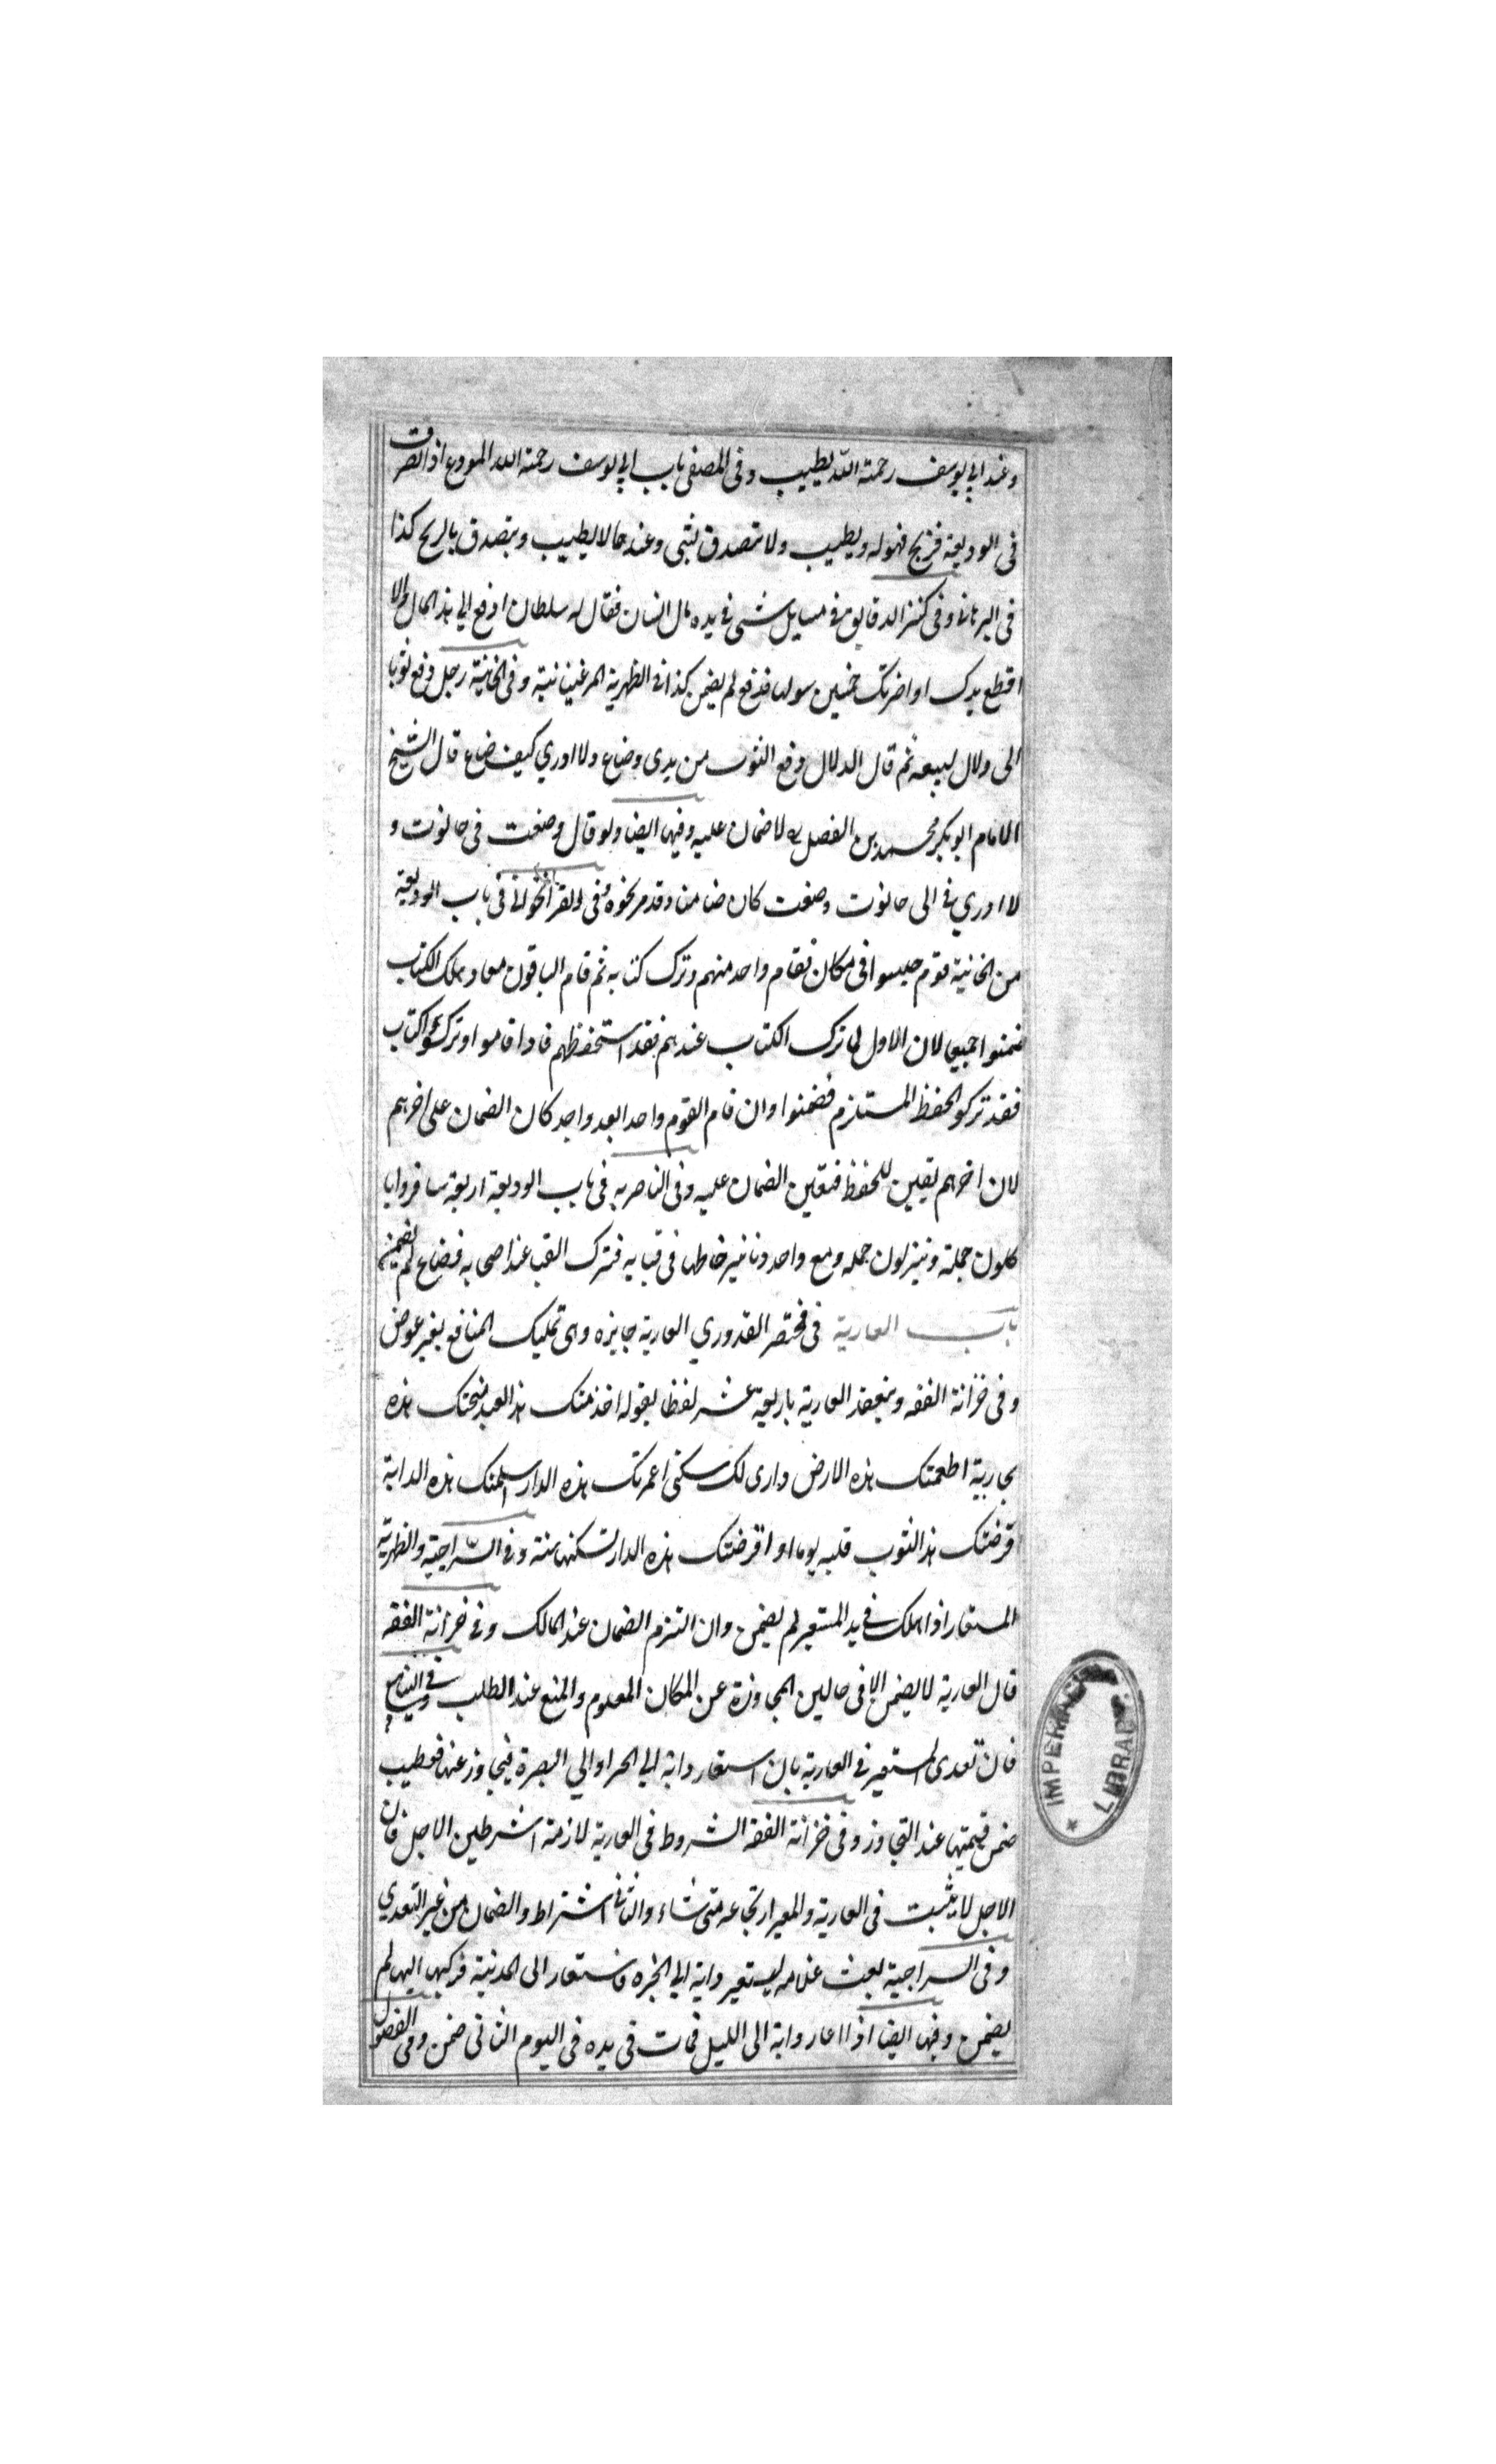 وعند ابي يوسف رحمة الله يطيب وفى المصفى باب ابي يوسف رحمة الله المودع اذا تصرف
فى الوديعة فربح فهو له ويطيب ولا يتصدق بشى وعندهما لا يطيب ويتصدق بالربح كذا
فى البرهانى وفى كنز الدقايق فى مسايل شتى فى يده مال انسان فقال له سلطان ادفع الي هذا المال والا
اقطع يدك او اضربك خمسين سوطا فدفع لم يضمن كذا فى الظهرية المرغينانية وفى الخانية رجل دفع ثوبا
الى دلال ليبيعه ثم قال الدلال وقع الثوب من يدى وضاع ولا ادري كيف ضاع قال الشيخ
الامام ابو بكر محمد بن الفضل لا ضمان عليه وفيها ايضا ولو قال وضعت فى حانوت و
لا ادري فى اى حانوت وضعت كان ضامنا وقد مر نحوه وفى فى باب الوديعة
من الخانية قوم جلسوا فى مكان فقام واحد منهم وترك كتابه ثم قام الباقون معا وهلك الكتاب
ضمنوا جميعا لان الاول لما ترك الكتاب عندهم فقد استحفظهم فاذا قاموا وتركوا الكتاب
فقد تركوا الحفظ الملتزم فضمنوا وان قام القوم واحدا بعد واحد كان الضمان على اخرهم
لان اخرهم تعين للحفظ فتعين الضمان عليه وفى الناصريه فى باب الوديعة اربعة سافروا يا
كلون جملة وينزلون جمله ومع واحد دنانير خاطها فى قبايه فترك القبا عند اصحابه فضاع لم يضمن
باب العارية فى مختصر القدوري العارية جايزه وهى تمليك المنافع بغير عوض
وفى خزانة الفقه وينعقد العارية باربعة عشر لفظا بقوله اخدمتك هذا العبد منحتك هذه
الجارية اطعمتك هذه الارض داري لك سكنى اعمرتك هذه الدار هذه الدابة
اقرضتك هذا الثوب يوما او اقرضتك هذه الدار لتسكنها سنة وفى السراجية والظهرية
المستعار اذا هلك فى يد المستعير لم يضمن وان التزم الضمان عند المالك وفى خزانة الفقه
قال العارية لا يضمن الا فى حالين المجاوزة عن المكان المعلوم والمنع عند الطلب وفى الينابيع
فان تعدى المستعير فى العارية بان استعار دابة الي او الي البصرة فيجاوز عنها فعطبت
ضمن قيمتها عند التجاوز وفى خزانة الفقه الشروط فى العارية لازمة الا شرطين الاجل فان
الاجل لا يثبت فى العارية وللمعير ارتجاعه متى شاء والثانى اشتراط الضمان من غير التعدي
وفى السراجية بعث غلامه ليستعير دابة الي فاستعار الى المدينة فركبها اليها لم
يضمن وفيها ايضا اذا اعار دابة الى الليل فمات فى يده فى اليوم الثانى ضمن وفى الفصول
IMPERIAL
LIBRARY